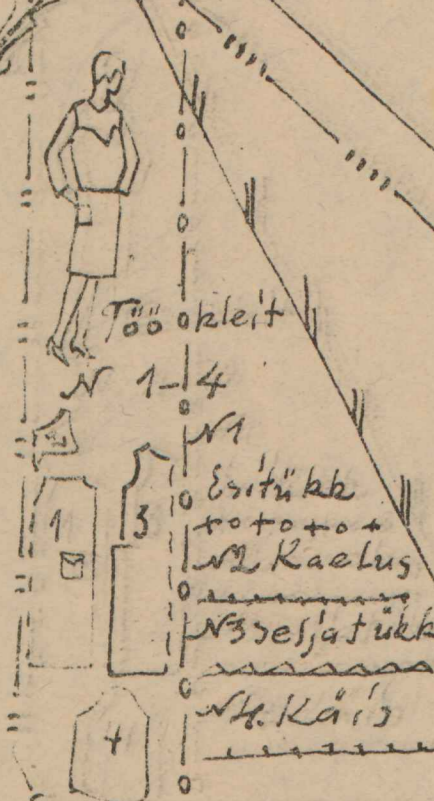 Töö kleit
N 1-4
N1
Esitükk
1 3
N2 Kaelus
N3 seljatükk
N4. Käis
4